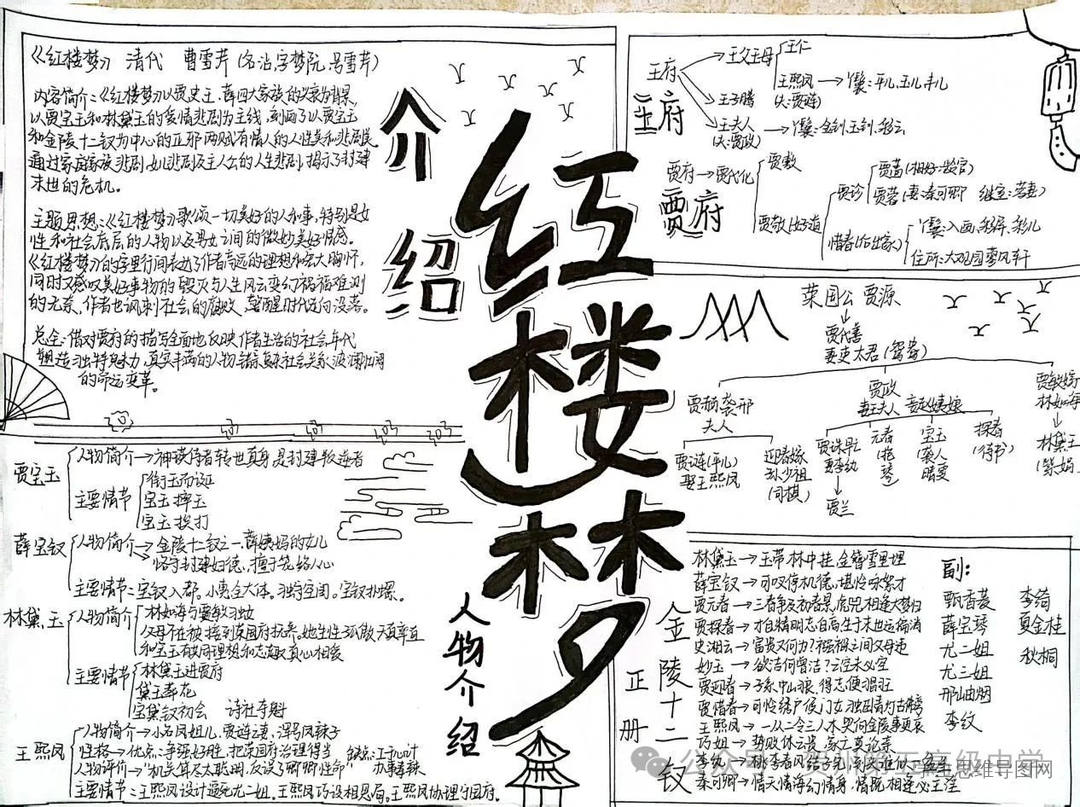 《红楼梦》 清代 曹雪芹(名沾,字梦阮,号雪芹)
内容简介:《红楼梦》以贾史王薛四大家族的兴衰为背景,
以贾宝玉和林黛玉的爱情悲剧为主线,刻画了以贾宝玉
和金陵十二钗为中心的正邪两赋有情人的人性美和悲剧美
通过家庭家族悲剧、女儿悲剧及主人公的人生悲剧,揭示了封建
末世的危机。
主题思想:《红楼梦》歌颂一切美好的人和事,特别是女
性和社会底层的人物以及男女之间的微妙美好情感。
《红楼梦》的字里行间表达了作者高远的理想和宏大胸怀,
同时又感叹美好事物的毁灭与人生风云变幻祸福难测
的无奈,作者也讽刺社会的腐败,
总全:借对贾府的描写全面地反映作者生活的社会年代
塑造独特魅力,真实丰满的人物
的命运变革。
介绍
红楼梦
人物介绍
贾宝玉
人物简介→神瑛侍者转世真身,是封建叛逆者
主要情节
衔玉而诞
宝玉摔玉
宝玉挨打
薛宝钗
人物简介→金陵十二钗之一,薛姨妈的女儿
恪守封建妇德,擅于笼络人心
主要情节:宝钗入都。小惠全大体。独守空闺。宝钗扑蝶。
林黛玉
人物简介
林如海与贾敏独女
父母死在被接到荣国府抚养,她生性孤傲,天真率直
和宝玉有共同理想和志趣,真心相爱
主要情节
林黛玉进贾府
黛玉葬花
宝黛钗初会 诗社夺魁
王熙凤
人物简介→小名凤姐儿,贾琏之妻,浑号凤辣子
性格→优点:争强好胜,把荣国府治理得当 缺点:工于心计
办事毒辣
人物评价→"机关算尽太聪明,反误了卿卿性命"
主要情节:王熙凤设计逼死尤二姐。王熙凤巧设相思局。王熙凤协理宁国府。
王府
王父王母
王仁
王熙凤→丫鬟:平儿,玉儿,丰儿
(夫:贾琏)
王子腾
王夫人→丫鬟:金钏,玉钏,彩云
(夫:贾政)
贾府
贾府→贾代化
贾敷
贾敬(好道
贾珍
贾蔷(相好:龄官)
贾蓉(妻:秦可卿
惜春(后出家)
丫鬟:入画,彩屏,彩儿
住所:大观园蓼风轩
荣国公 贾源
贾代善
妻史太君(鸳鸯)
贾赦妻邢
夫人
贾政
妻王夫人 妾赵姨娘
贾敏嫁
林如海
贾琏(平儿)
娶王熙凤
迎春嫁
孙少祖
(司棋)
贾珠早
李纨
贾兰
元春
(抱
琴)
宝玉
(袭人
晴雯
探春
(侍书)
林黛玉
金陵十二钗
正册
林黛玉→玉带林中挂,金簪雪里埋
薛宝钗→可叹停机德,堪怜咏絮才
贾元春→三春争及初春景,虎兕相逢大梦归
贾探春→才自精明志自高,生于末世运偏消
史湘云→富贵又何为?襁褓之间父母违
妙玉→欲洁何曾洁?云空未必空
贾迎春→子系中山狼,得志便猖狂
贾惜春→可怜绣户侯门女,独卧青灯古佛旁
王熙凤→一从二令三人木,哭向金陵事更哀
巧姐→势败休云贵,家亡莫论亲
李纨→桃李春风结子完,到头谁似一盆兰
秦可卿→情天情海幻情身,情既相逢必主淫
副:
甄香菱
薛宝琴
尤二姐
尤三姐
邢岫烟
李纹
李绮
夏金桂
秋桐
学生思维导图网